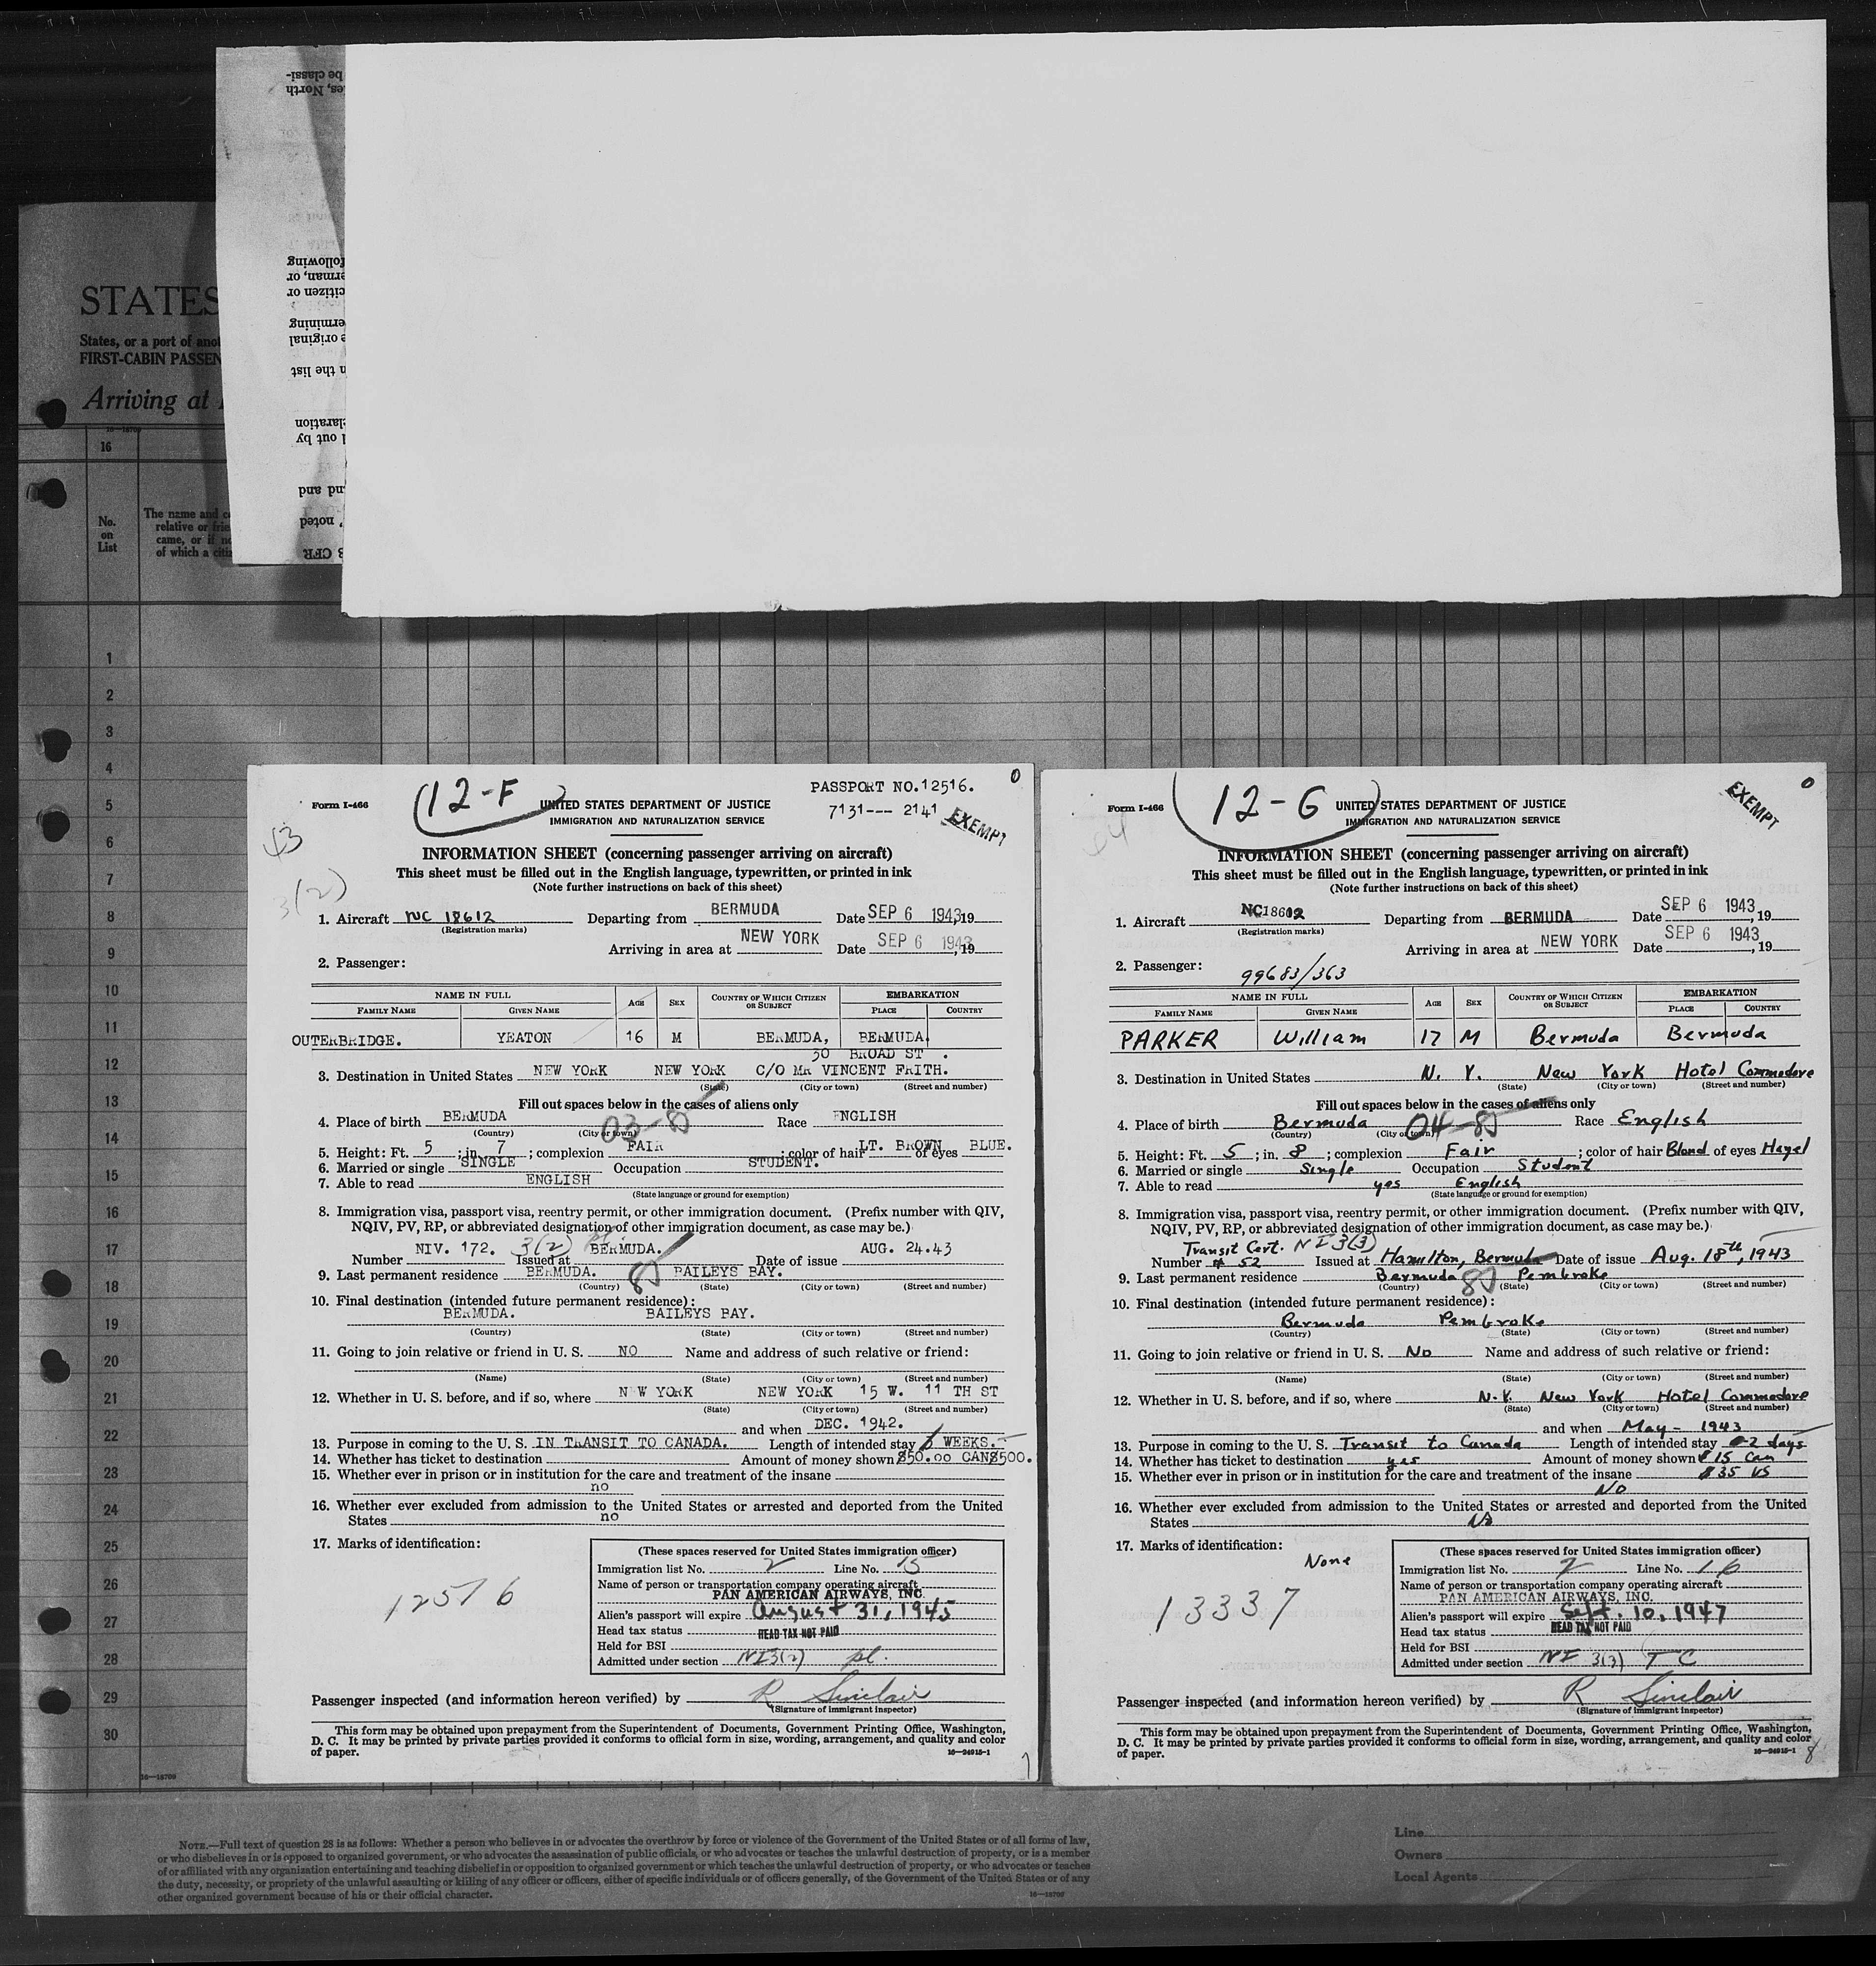 be classi-
es, North
following
erman, or
citizen or
ermining
e original
n the list
claration
d out by
nd and
, noted
8 CFR
STATES
States, or a port of
FIRST-CABIN PASSEN
Arriving at
16—18700
16
No.
on
List
The name and
relative or
came, or if
of which a
1
2
3
4
5
6
7
8
9
10
11
12
13
14
15
16
17
18
19
20
21
22
23
24
25
26
27
28
29
30
16—18700
Form I-466
12-F
PASSPORT NO.12516.
7131--- 2141
EXEMPT
0
43
3(2)
UNITED STATES DEPARTMENT OF JUSTICE
IMMIGRATION AND NATURALIZATION SERVICE
INFORMATION SHEET (concerning passenger arriving on aircraft)
This sheet must be filled out in the English language, typewritten, or printed in ink
(Note further instructions on back of this sheet)
1. Aircraft NC 18612 Departing from BERMUDA Date SEP 6 1943, 19
(Registration marks)
Arriving in area at NEW YORK Date SEP 6 1943, 19
2. Passenger:
NAME IN FULL AGE SEX COUNTRY OF WHICH CITIZEN OR SUBJECT EMBARKATION
FAMILY NAME GIVEN NAME PLACE COUNTRY
OUTERBRIDGE. YEATON 16 M BERMUDA, BERMUDA
30 BROAD ST .
3. Destination in United States NEW YORK NEW YORK C/O MR VINCENT FRITH.
(State) (City or town) (Street and number)
Fill out spaces below in the cases of aliens only
4. Place of birth BERMUDA 03-85 Race ENGLISH
(Country) (City or town)
5. Height: Ft. 5 ; in. 7 ; complexion FAIR ; color of hair LT. BROWN of eyes BLUE.
6. Married or single SINGLE Occupation STUDENT.
7. Able to read ENGLISH
(State language or ground for exemption)
8. Immigration visa, passport visa, reentry permit, or other immigration document. (Prefix number with QIV,
NQIV, PV, RP, or abbreviated designation of other immigration document, as case may be.)
Number NIV. 172. 3(2) pl. Issued at BERMUDA. Date of issue AUG. 24.43
9. Last permanent residence BERMUDA. 85 BAILEYS BAY.
(Country) (State) (City or town) (Street and number)
10. Final destination (intended future permanent residence):
BERMUDA. BAILEYS BAY.
(Country) (State) (City or town) (Street and number)
11. Going to join relative or friend in U. S. NO Name and address of such relative or friend:
(Name) (State) (City or town) (Street and number)
12. Whether in U. S. before, and if so, where NEW YORK NEW YORK 15 W. 11 TH ST
(State) (City or town) (Street and number)
and when DEC. 1942.
13. Purpose in coming to the U. S. IN TRANSIT TO CANADA. Length of intended stay WEEKS.
14. Whether has ticket to destination Amount of money shown $50.00 CAN$500.
15. Whether ever in prison or in institution for the care and treatment of the insane
no
16. Whether ever excluded from admission to the United States or arrested and deported from the United
States no
17. Marks of identification:
12516
(These spaces reserved for United States immigration officer)
Immigration list No. 2 Line No. 15
Name of person or transportation company operating aircraft
PAN AMERICAN AIRWAYS, INC.
Alien's passport will expire August 31, 1945
Head tax status HEAD TAX NOT PAID
Held for BSI
Admitted under section NI3(2) pl.
Passenger inspected (and information hereon verified) by R Sinclair
(Signature of immigrant inspector)
This form may be obtained upon prepayment from the Superintendent of Documents, Government Printing Office, Washington,
D. C. It may be printed by private parties provided it conforms to official form in size, wording, arrangement, and quality and color
of paper. 16—24915-1
7
Form I-466
12-G
EXEMPT
0
UNITED STATES DEPARTMENT OF JUSTICE
IMMIGRATION AND NATURALIZATION SERVICE
INFORMATION SHEET (concerning passenger arriving on aircraft)
This sheet must be filled out in the English language, typewritten, or printed in ink
(Note further instructions on back of this sheet)
1. Aircraft NC18602 Departing from BERMUDA Date SEP 6 1943, 19
(Registration marks)
Arriving in area at NEW YORK Date SEP 6 1943, 19
2. Passenger: 99683/363
NAME IN FULL AGE SEX COUNTRY OF WHICH CITIZEN OR SUBJECT EMBARKATION
FAMILY NAME GIVEN NAME PLACE COUNTRY
PARKER William 17 M Bermuda Bermuda
3. Destination in United States N. Y. New York Hotel Commodore
(State) (City or town) (Street and number)
Fill out spaces below in the cases of aliens only
4. Place of birth Bermuda 04-85 Race English
(Country) (City or town)
5. Height: Ft. 5 ; in. 8 ; complexion Fair ; color of hair Blond of eyes Hazel
6. Married or single Single Occupation Student
7. Able to read yes English
(State language or ground for exemption)
8. Immigration visa, passport visa, reentry permit, or other immigration document. (Prefix number with QIV,
NQIV, PV, RP, or abbreviated designation of other immigration document, as case may be.)
Transit Cert. NI3(3)
Number # 52 Issued at Hamilton, Bermuda Date of issue Aug. 18th, 1943
9. Last permanent residence Bermuda 85 Pembroke
(Country) (State) (City or town) (Street and number)
10. Final destination (intended future permanent residence):
Bermuda Pembroke
(Country) (State) (City or town) (Street and number)
11. Going to join relative or friend in U. S. No Name and address of such relative or friend:
(Name) (State) (City or town) (Street and number)
12. Whether in U. S. before, and if so, where N.Y. New York Hotel Commodore
(State) (City or town) (Street and number)
and when May - 1943
13. Purpose in coming to the U. S. Transit to Canada Length of intended stay 2 days
14. Whether has ticket to destination yes Amount of money shown $15 Can
15. Whether ever in prison or in institution for the care and treatment of the insane $35 US
No
16. Whether ever excluded from admission to the United States or arrested and deported from the United
States No
17. Marks of identification:
None
13337
(These spaces reserved for United States immigration officer)
Immigration list No. 2 Line No. 16
Name of person or transportation company operating aircraft
PAN AMERICAN AIRWAYS, INC.
Alien's passport will expire Sept. 10, 1947
Head tax status HEAD TAX NOT PAID
Held for BSI
Admitted under section NI 3(3) TC
Passenger inspected (and information hereon verified) by R Sinclair
(Signature of immigrant inspector)
This form may be obtained upon prepayment from the Superintendent of Documents, Government Printing Office, Washington,
D. C. It may be printed by private parties provided it conforms to official form in size, wording, arrangement, and quality and color
of paper. 16—24915-1
8
NOTE.—Full text of question 28 is as follows: Whether a person who believes in or advocates the overthrow by force or violence of the Government of the United States or of all forms of law,
or who disbelieves in or is opposed to organized government, or who advocates the assassination of public officials, or who advocates or teaches the unlawful destruction of property, or is a member
of or affiliated with any organization entertaining and teaching disbelief in or opposition to organized government or which teaches the unlawful destruction of property, or who advocates or teaches
the duty, necessity, or propriety of the unlawful assaulting or killing of any officer or officers, either of specific individuals or of officers generally, of the Government of the United States or of any
other organized government because of his or their official character. 16—18700
Line
Owners
Local Agents